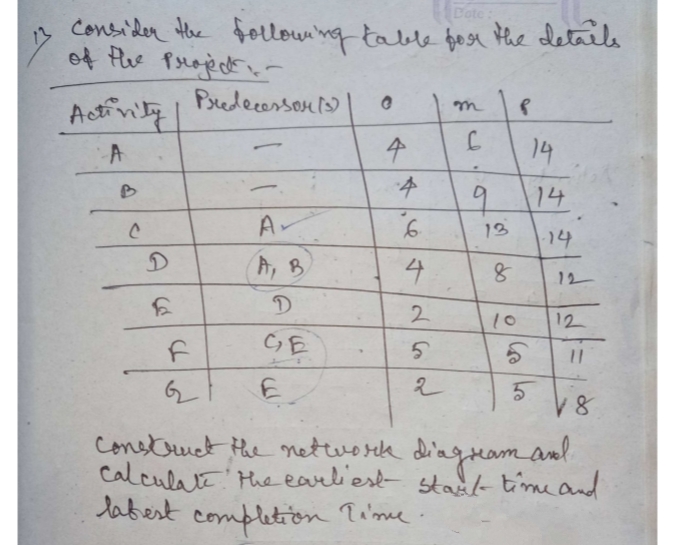 1) Consider the following table for the details
of the Project :-
Activity Predecessor(s) o m p
A — 4 6 14
B — 4 9 14
C A 6 13 14
D A, B 4 8 12
E D 2 10 12
F C, E 5 5 11
G E 2 5 8
construct the network diagram and
calculate the earliest start time and
latest completion Time.